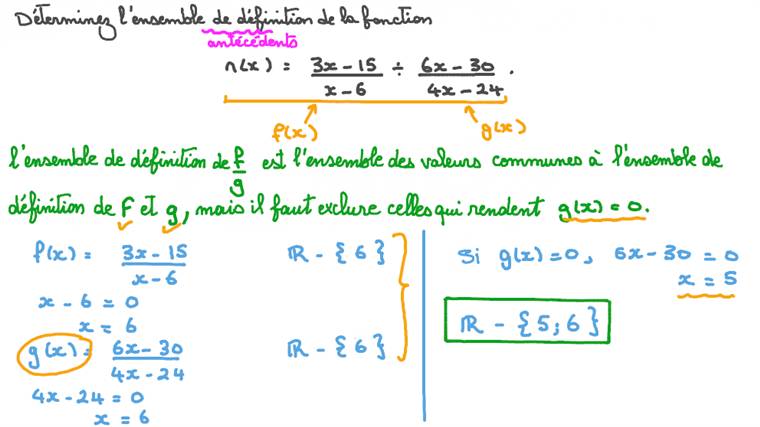 Déterminez l'ensemble de définition de la fonction
antécédents
n(x) = (3x - 15)/(x - 6) ÷ (6x - 30)/(4x - 24).
f(x) g(x)
l'ensemble de définition de f/g est l'ensemble des valeurs communes à l'ensemble de
définition de f et g, mais il faut exclure celles qui rendent g(x) = 0.
f(x) = (3x - 15)/(x - 6) ℝ - {6}
x - 6 = 0
x = 6
g(x) = (6x - 30)/(4x - 24) ℝ - {6}
4x - 24 = 0
x = 6
Si g(x) = 0, 6x - 30 = 0
x = 5
ℝ - {5; 6}